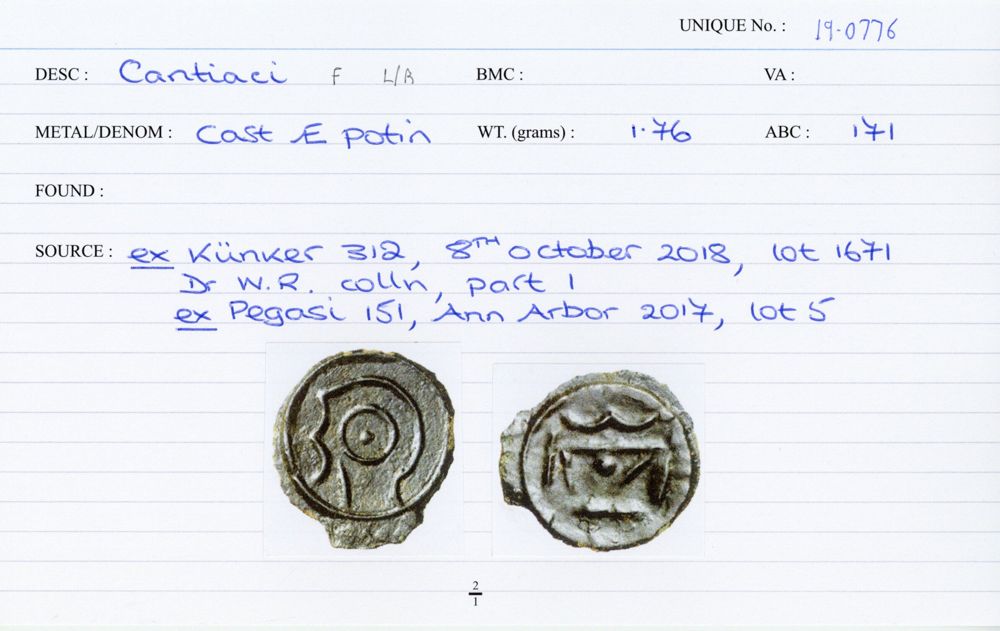 UNIQUE No. : 19-0776
DESC : Cantiaci F L/B BMC : VA :
METAL/DENOM : Cast Æ potin WT. (grams) : 1.76 ABC : 171
FOUND :
SOURCE : ex Künker 312, 8TH October 2018, lot 1671
Dr W.R. colln, part 1
ex Pegasi 151, Ann Arbor 2017, lot 5
2
1